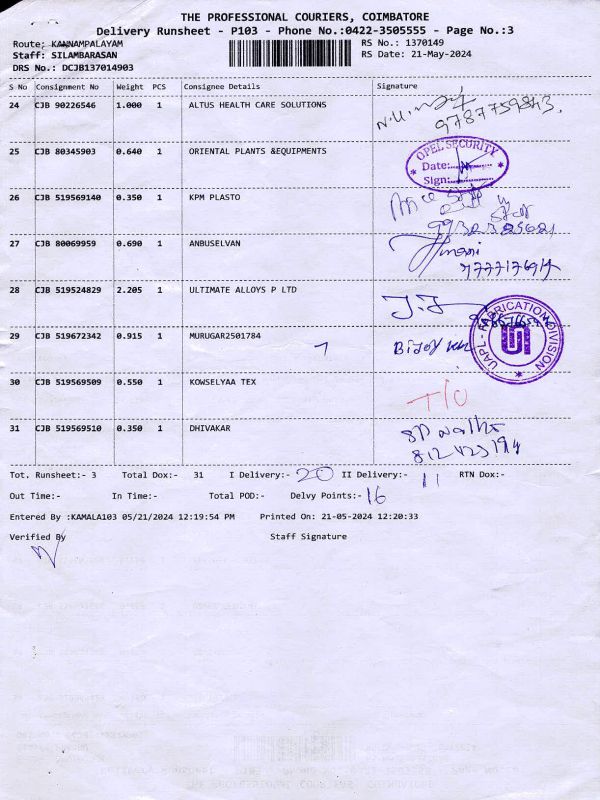 THE PROFESSIONAL COURIERS, COIMBATORE
Delivery Runsheet - P103 - Phone No.:0422-3505555 - Page No.:3
Route; KANNAMPALAYAM
RS No.: 1370149
Staff: SILAMBARASAN
RS Date: 21-May-2024
DRS No.: DCJB137014903
S No Consignment No Weight PCS Consignee Details Signature
24 CJB 90226546 1.000 1 ALTUS HEALTH CARE SOLUTIONS
9787759843.
25 CJB 80345903 0.640 1 ORIENTAL PLANTS &EQUIPMENTS
OPEL SECURITY
Date:
Sign:
26 CJB 519569140 0.350 1 KPM PLASTO
27 CJB 80069959 0.690 1 ANBUSELVAN
28 CJB 519524829 2.205 1 ULTIMATE ALLOYS P LTD
UAPL - FABRICATION DIVISION
29 CJB 519672342 0.915 1 MURUGAR2501784
30 CJB 519569509 0.550 1 KOWSELYAA TEX
T/O
31 CJB 519569510 0.350 1 DHIVAKAR
Tot. Runsheet:- 3 Total Dox:- 31 I Delivery:- 20 II Delivery:- 11 RTN Dox:-
Out Time:- In Time:- Total POD:- Delvy Points:- 16
Entered By :KAMALA103 05/21/2024 12:19:54 PM Printed On: 21-05-2024 12:20:33
Verified By Staff Signature